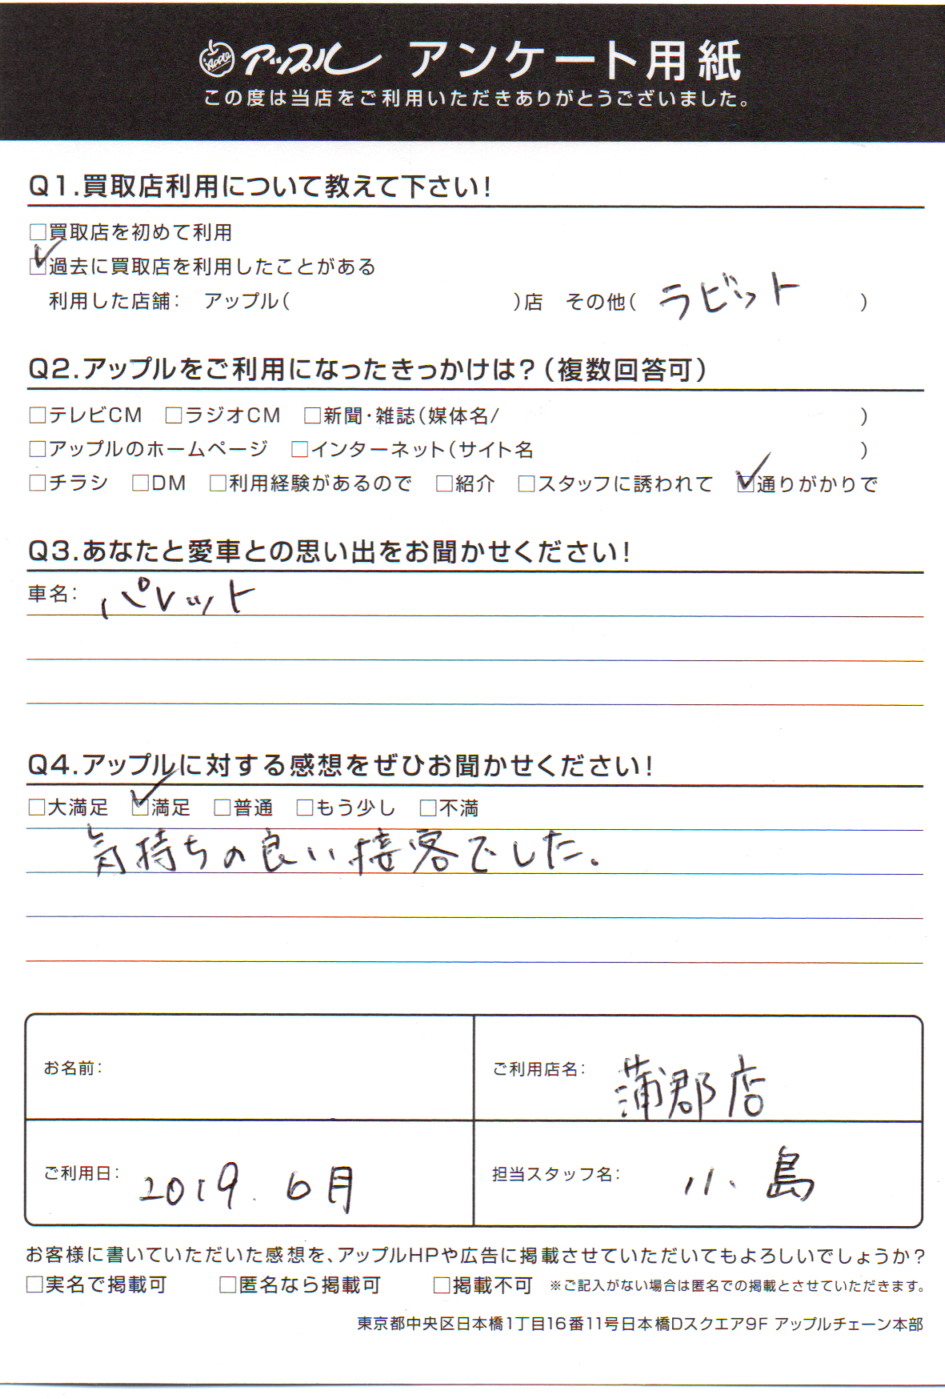 アップル アンケート用紙
この度は当店をご利用いただきありがとうございました。
Q1.買取店利用について教えて下さい!
□買取店を初めて利用
☑過去に買取店を利用したことがある
利用した店舗: アップル( )店 その他( ラビット )
Q2.アップルをご利用になったきっかけは?(複数回答可)
□テレビCM □ラジオCM □新聞・雑誌(媒体名/ )
□アップルのホームページ □インターネット(サイト名 )
□チラシ □DM □利用経験があるので □紹介 □スタッフに誘われて ☑通りがかりで
Q3.あなたと愛車との思い出をお聞かせください!
車名: パレット
Q4.アップルに対する感想をぜひお聞かせください!
□大満足 ☑満足 □普通 □もう少し □不満
気持ちの良い接客でした。
お名前:
ご利用店名: 蒲郡店
ご利用日: 2019.6月
担当スタッフ名: 小島
お客様に書いていただいた感想を、アップルHPや広告に掲載させていただいてもよろしいでしょうか?
□実名で掲載可 □匿名なら掲載可 □掲載不可 ※ご記入がない場合は匿名での掲載とさせていただきます。
東京都中央区日本橋1丁目16番11号日本橋Dスクエア9F アップルチェーン本部